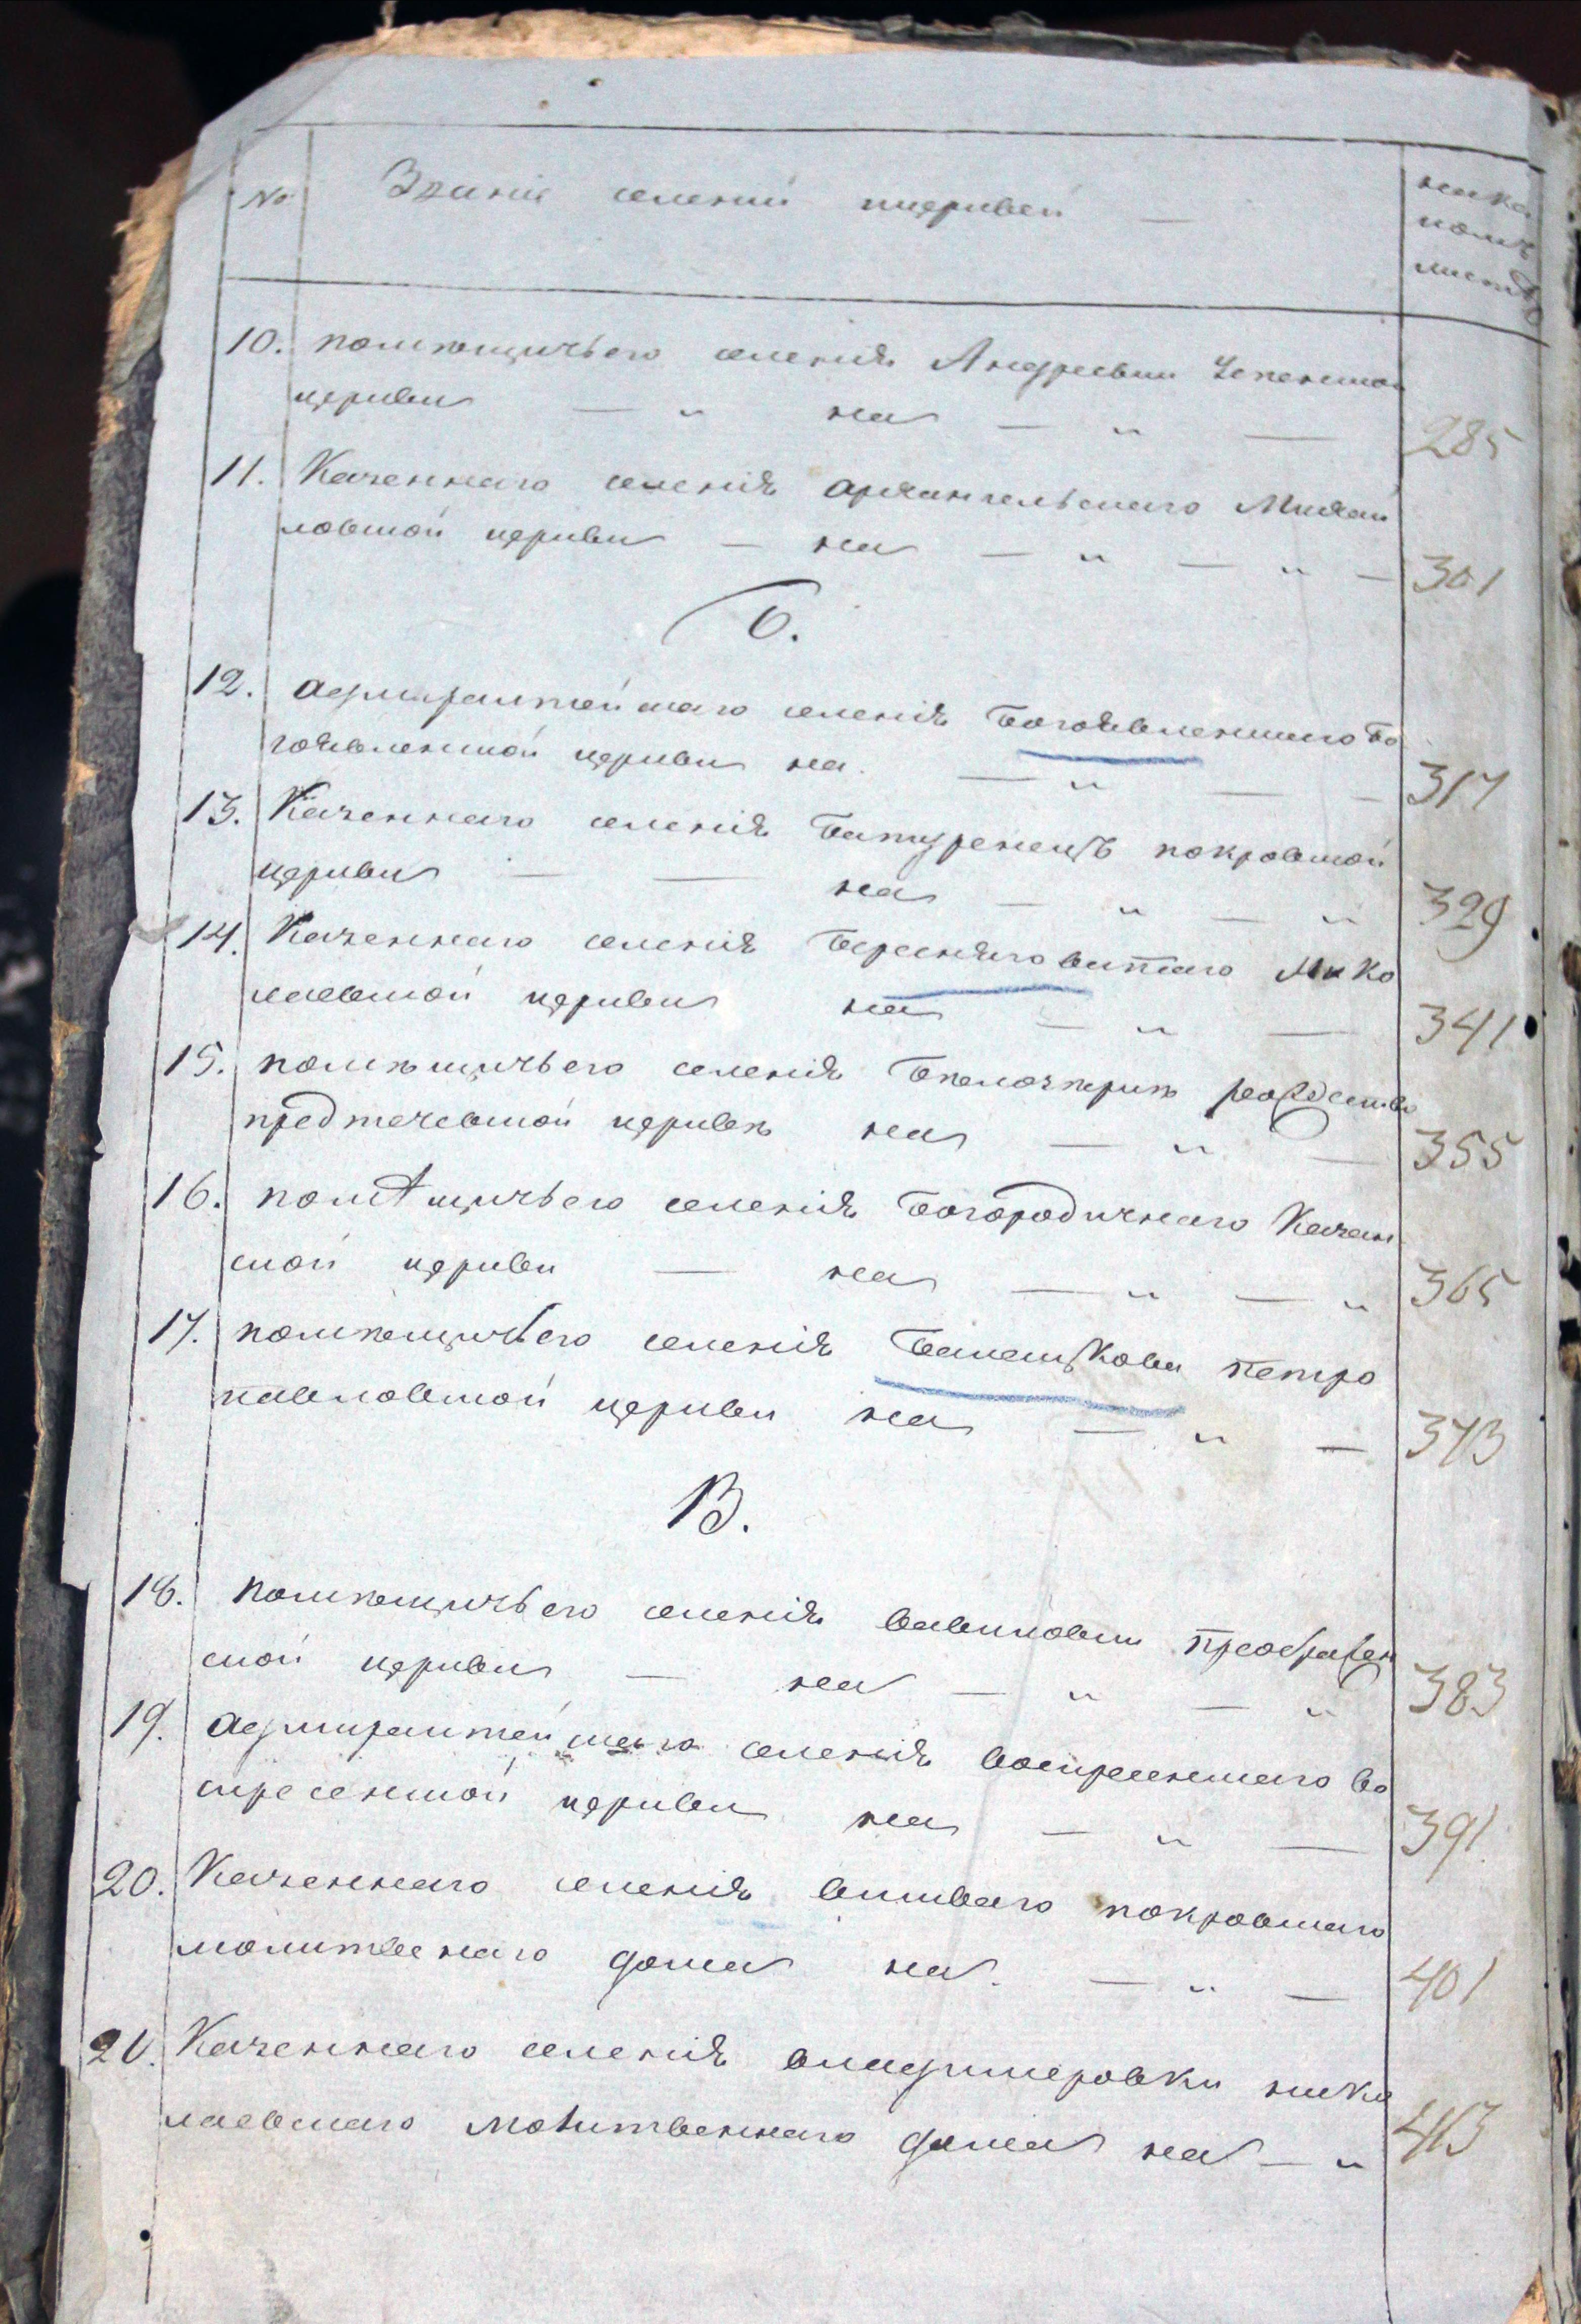 № Званіе селеній и церквей —
на ка
комъ
листѣ
10. помѣщичьего селенія Андреевки Успенской
церкви — „ на — „ — 285
11. Казеннаго селенія Архангельскаго Михай
ловской церкви — на — „ — „ — 301
Б.
12. адмиралтейскаго селенія Богоявленскаго Бо
гоявленской церкви на. — „ — — 317
13. Казеннаго селенія Батуренецъ покровской
церкви — — на — „ — „ 329
14. Казеннаго селенія Бересняговатаго Нико
лаевской церкви на — „ — 341
15. помѣщичьего селенія Бѣлозѣрки рождество
предтечевской церквѣ на — „ — 355
16. помѣщичьего селенія Богородичнаго Казан
ской церкви — на — „ — „ 365
17. помѣщичьего селенія Балацкова Петро
павловской церкви на — „ — 373
В.
18. помѣщичьего селенія Вавиловки Преображен
ской церкви — на — „ — „ 383
19. адмиралтейскаго селенія воскресенскаго во
скресенской церкви на — „ — 391.
20. Казеннаго селенія висиваго покровскаго
молитвенаго дома на. — „ — 401
21. Казеннаго селенія владимеровки нико
лаевскаго молитвеннаго дома на — „ 413